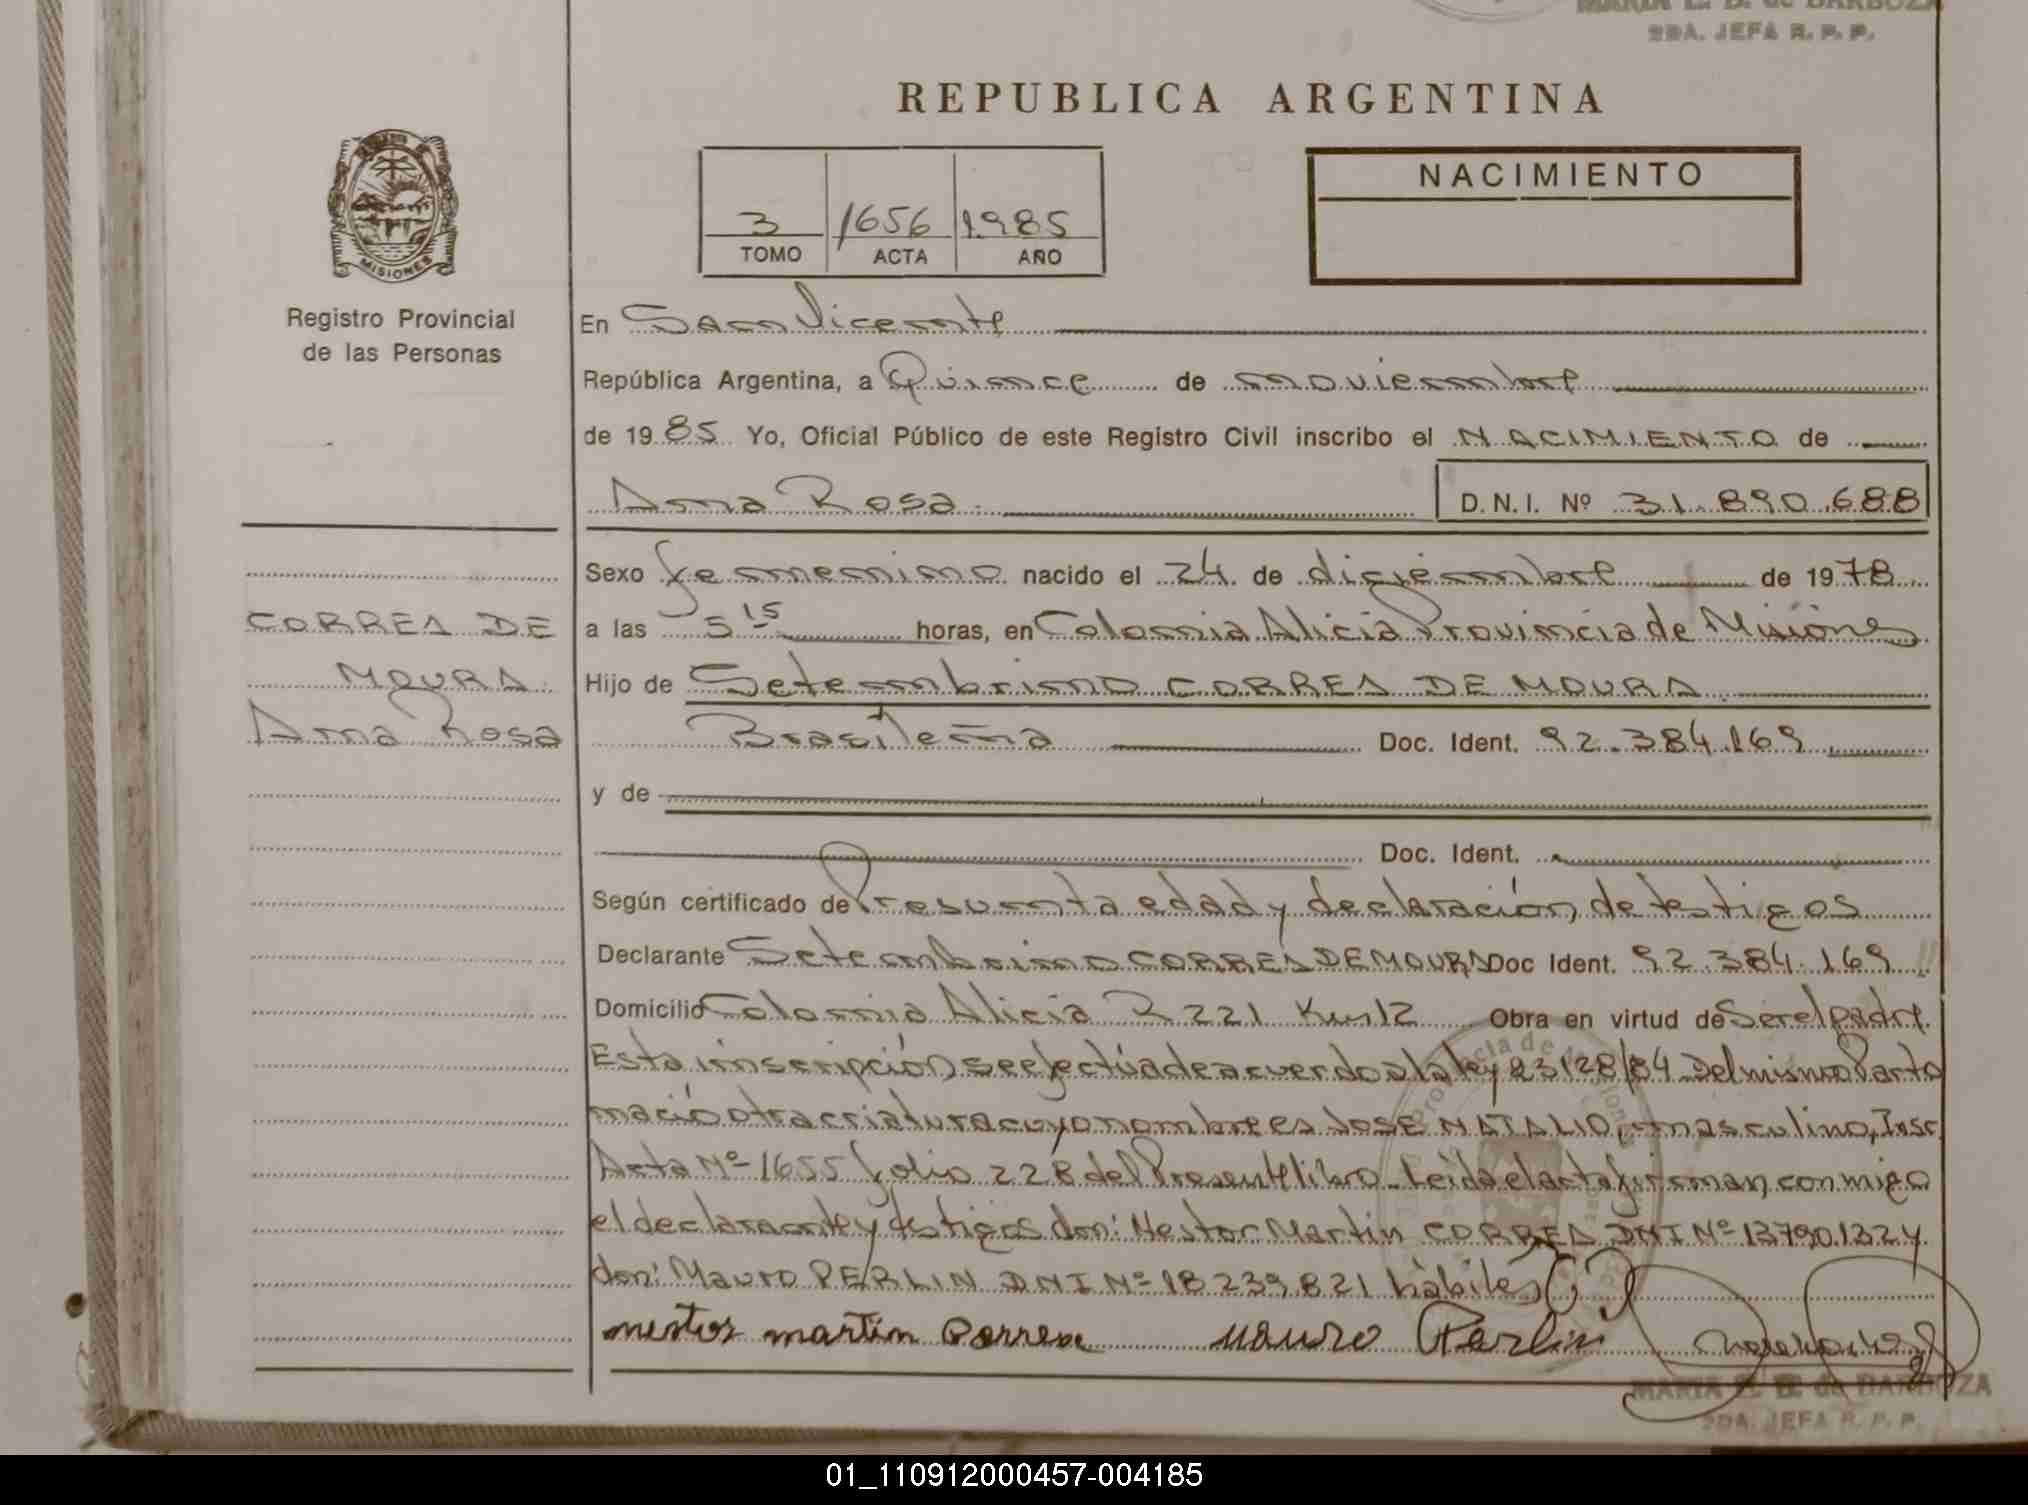 MARIA E. B. de BARBOZA
2DA. JEFA R. P. P.
REPUBLICA ARGENTINA
NACIMIENTO
3 1656 1985
TOMO ACTA AÑO
MISIONES
Registro Provincial
de las Personas
En San Vicente
República Argentina, a Quince de noviembre
de 1985 Yo, Oficial Público de este Registro Civil inscribo el NACIMIENTO de
Ana Rosa
D.N.I. Nº 31.890.688
Sexo femenino nacido el 24 de diciembre de 1978
CORREA DE
MOURA
Ana Rosa
a las 5 15 horas, en Colonia Alicia Provincia de Misiones
Hijo de Setembrino CORREA DE MOURA
Brasileña Doc. Ident. 92.384.169
y de
Doc. Ident.
Según certificado de Presunta edad y declaración de testigos
Declarante Setembrino CORREA DE MOURA Doc Ident. 92.384.169
Domicilio Colonia Alicia R 221 Km 12 Obra en virtud de Ser el padre.
Esta inscripción se efectúa de acuerdo a la ley 23128/84 Del mismo Parto
nació otra criatura cuyo nombre es JOSE NATALIO, masculino, Inscr.
Acta Nº 1655 folio 228 del Presente libro. Leída el acta firman conmigo
el declarante y testigos don: Nestor Martin CORREA DNI Nº 13790.132 y
don: Mauro PERLIN DNI Nº 18239.821 hábiles
nestor martin Correa Mauro Perlin
MARIA E. B. de BARBOZA
2DA. JEFA R. P. P.
01_110912000457-004185